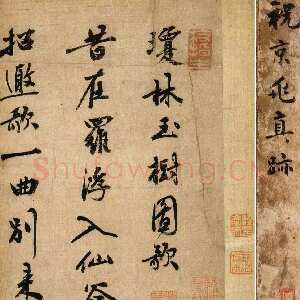 祝京兆真跡
瓊林玉樹圖歌
昔在羅浮入仙谷
招邀歌一曲別来
Shufawang.cn